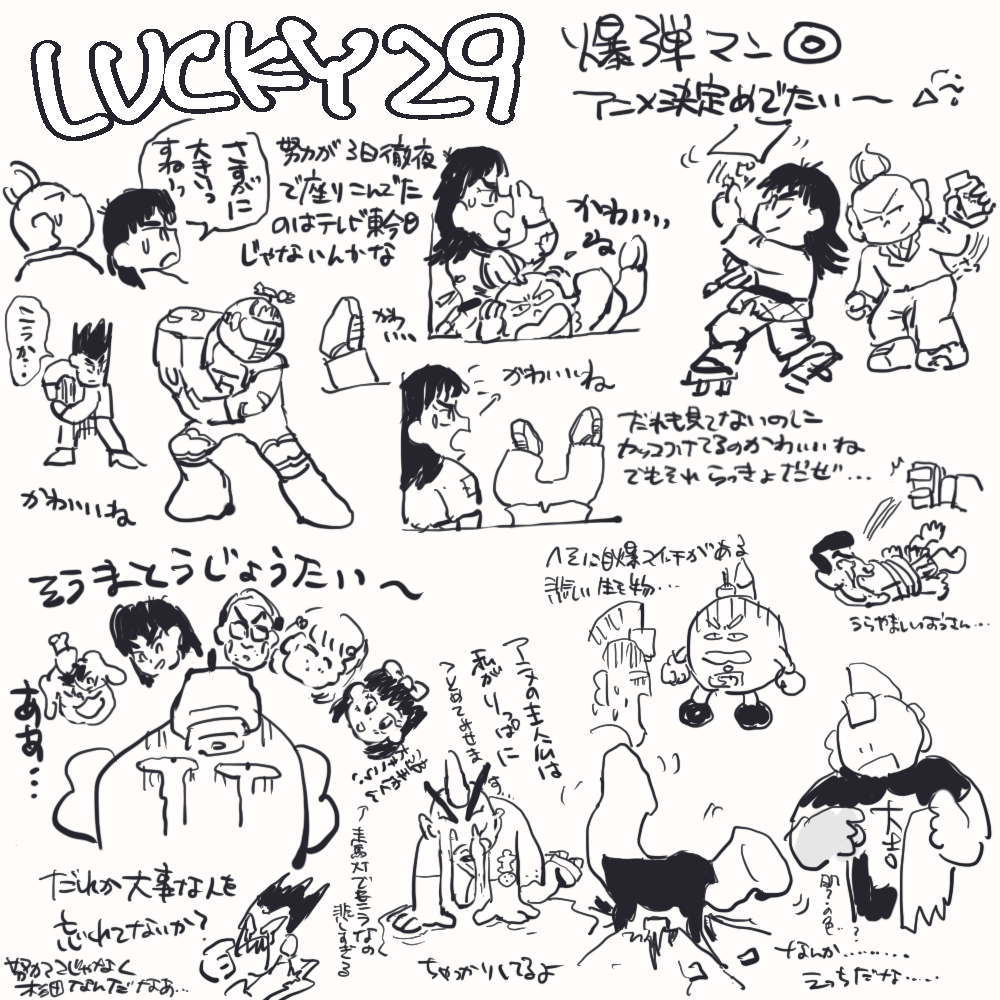 LUCKY29
爆弾マン◎
アニメ決定めでたい〜
さすがに
大きいっ
すねーっ
努力が3日徹夜
で座りこんでた
のはテレビ東今日
じゃないんかな
かわいい
ね
こうか…
かわ
いい…
かわいいね
かわいいね
だれも見てないのに
カッコつけてるのかわいいね
でもそれらっきょだぜ…
そうまとうじょうたい〜
ヘそに自爆スイッチがある
悲しい生き物…
うらやましいおっさん…
ああ…
アニメの主人公は
私がりっぱに
つとめてみせます
走馬灯で見うなの
悲しすぎる
大吉
肌?の色?
だれか大事な人を
忘れてないか?
努力マンじゃなく
ちゃっかりしてるよ
なんか………
えっちだな……